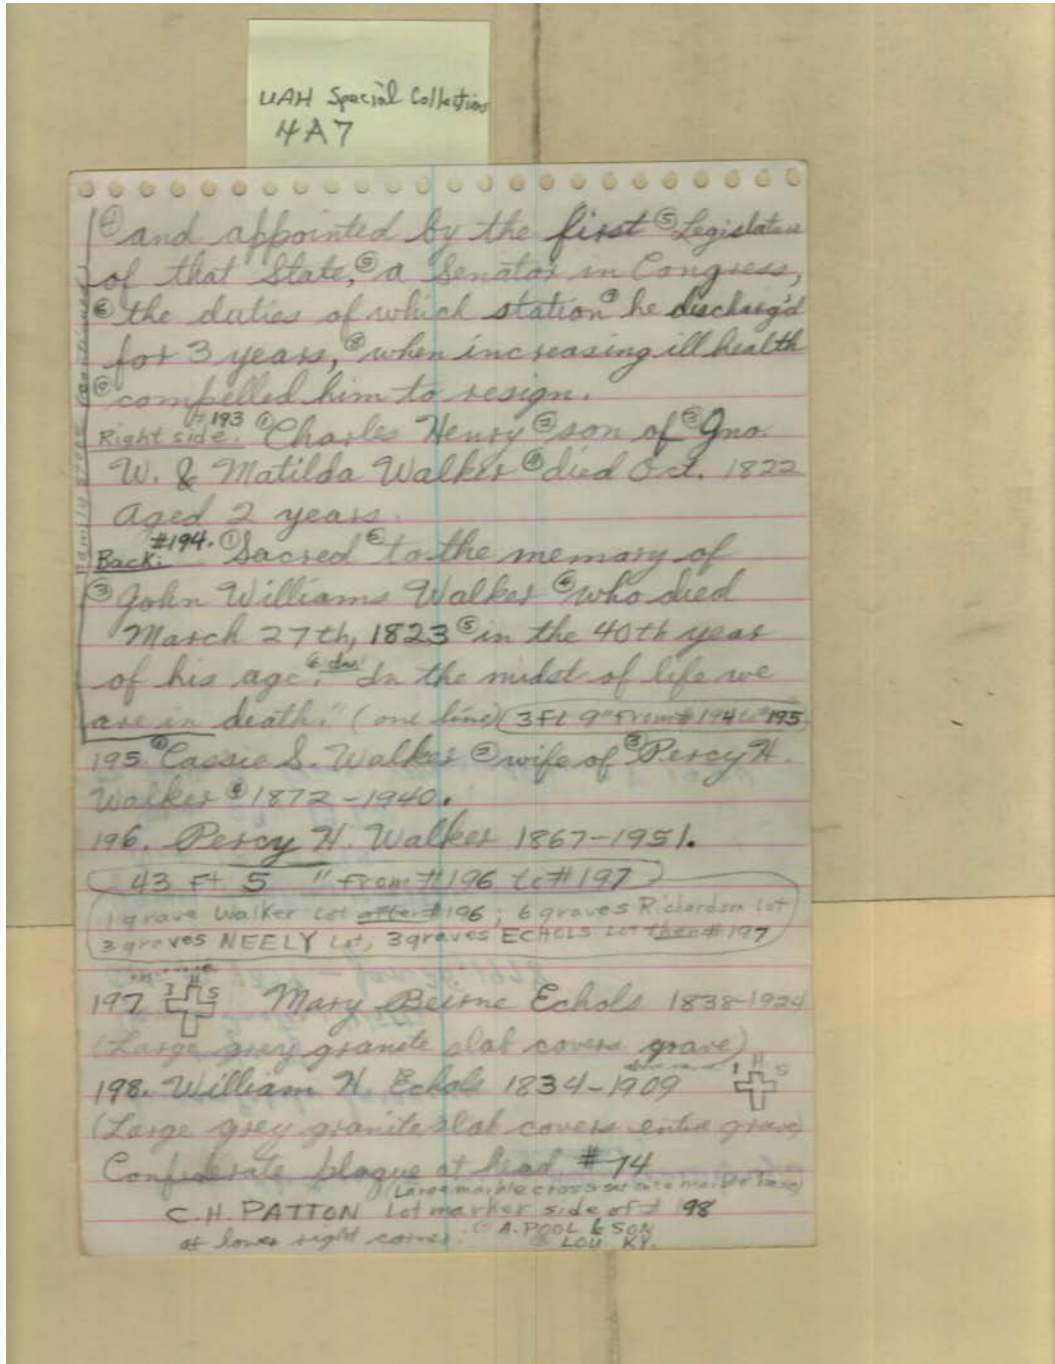 UAH Special Collections
4A7
④ and appointed by the first ⑤ Legislature
of that State, ⑤ a Senator in Congress,
⑥ the duties of which station ⑦ he discharg'd
for 3 years, ⑧ when increasing ill health
⑨ compelled him to resign.
Right side. #193 ① Charles Henry ② son of ③ Jno.
W. & Matilda Walker ④ died Oct. 1822
Aged 2 years.
Back: #194. ① Sacred ② to the memory of
③ John Williams Walker ④ who died
March 27th, 1823 ⑤ in the 40th year
of his age. ⑥ "In the midst of life we
are in death." (one line) 3 Ft 9" From #194 to #195
195. ① Cassie S. Walker ② wife of ③ Percy H.
Walker ④ 1872-1940.
196. Percy H. Walker 1867-1951.
43 Ft 5 " From #196 to #197
1 grave Walker Lot after #196; 6 graves Richardson Lot
3 graves NEELY Lot, 3 graves ECHOLS Lot then #197
197. I H S Mary Beirne Echols 1838-1924
(Large grey granite slab covers grave)
198. William H. Echols 1834-1909 I H S
(Large grey granite slab covers entire grave)
Confederate plaque at head. #74
(Large marble cross set into marble base)
C.H. PATTON Lot marker side of # 198
at lower right corner. ① A. POOL & SON
② LOU. KY.